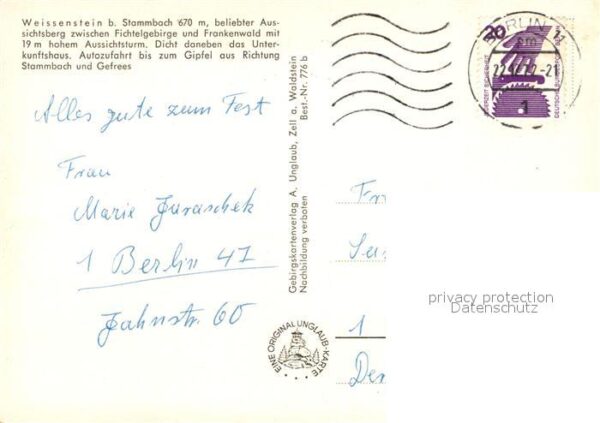 Weissenstein b. Stammbach 670 m, beliebter Aus-
sichtsberg zwischen Fichtelgebirge und Frankenwald mit
19 m hohem Aussichtsturm. Dicht daneben das Unter-
kunftshaus. Autozufahrt bis zum Gipfel aus Richtung
Stammbach und Gefrees
Alles gute zum Fest
Frau
Marie Juraschek
1 Berlin 47
Jahnstr. 60
Gebirgskartenverlag A. Unglaub, Zell a. Waldstein
Best.-Nr. 776 b
Nachbildung verboten
EINE ORIGINAL UNGLAUB-KARTE
BERLIN 11
30
DEUTSCHE BUNDESPOST
JEDERZEIT SICHERHEIT
1
1
privacy protection
Datenschutz